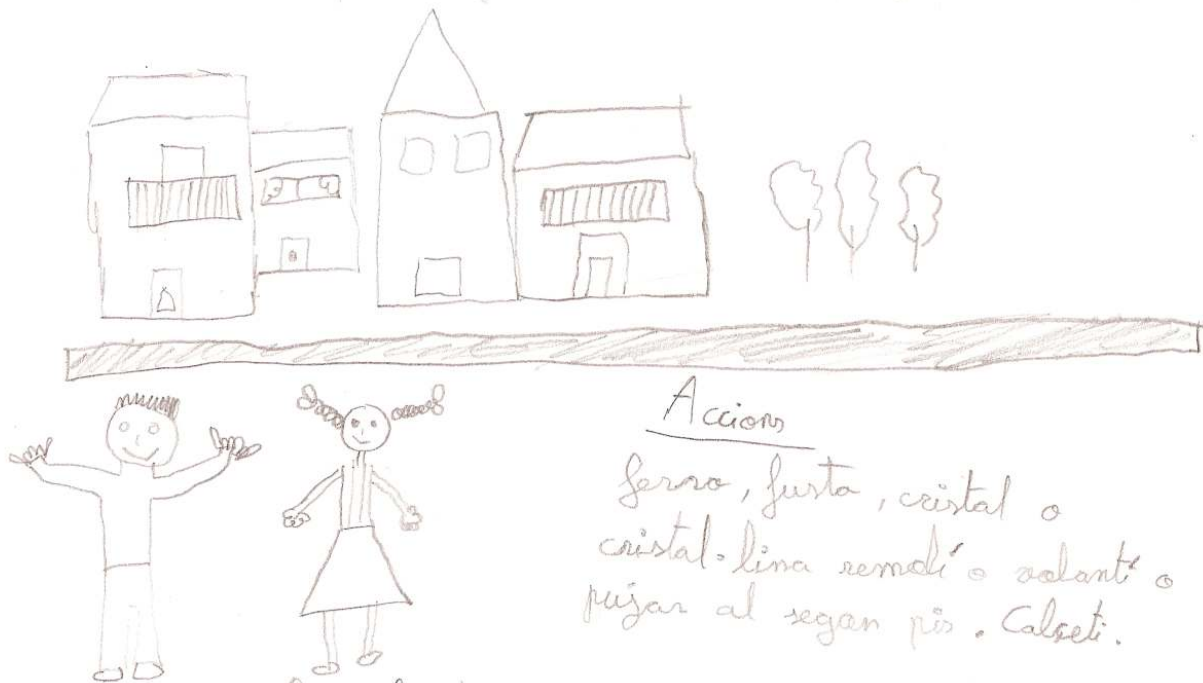 Accions
ferro, fusta, cristal o
cristal·lina remolí o volantí o
pujar al segon pis. Calceti.